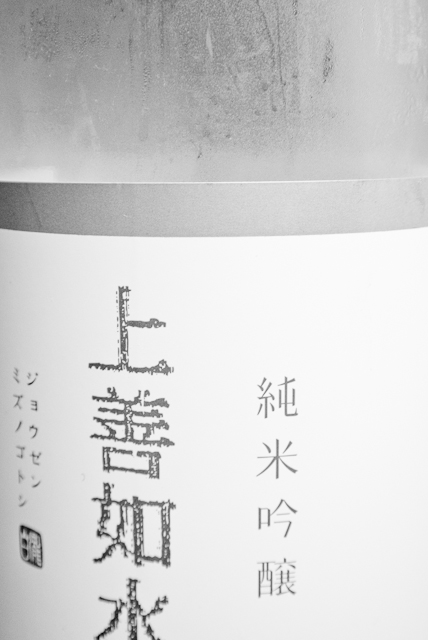 純米吟醸
上善如水
ジョウゼン
ミズノゴトシ